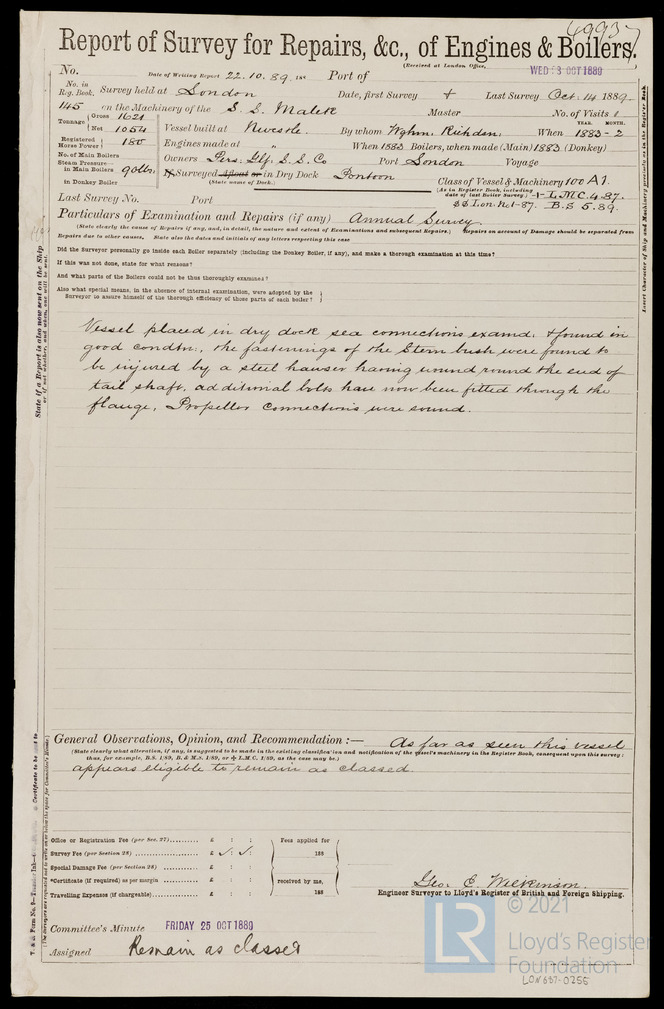 49937
Report of Survey for Repairs, &c., of Engines & Boilers.
(Received at London Office,
WED 23 OCT 1889
No.
Date of Writing Report 22.10.89
Port of
No. in Reg. Book.
Survey held at London
Date, first Survey
Last Survey Oct. 14 1889
145
on the Machinery of the S. S. Malek
Master
No. of Visits 1
Tonnage
Gross 1621
Net 1054
YEAR. MONTH.
Vessel built at Newcastle
By whom Wghm. Richdsn.
When 1883-2
Registered Horse Power 180
Engines made at "
When 1883 Boilers, when made (Main) 1883 (Donkey)
No. of Main Boilers
Owners Pers. Glf. S. S. Co
Port London Voyage
Steam Pressure in Main Boilers 90 lbs.
Surveyed Afloat or in Dry Dock Pontoon
(State name of Dock.)
Class of Vessel & Machinery 100 A1.
(As in Register Book, including date of last Boiler Survey.)
+ L.M.C. 4.87.
in Donkey Boiler
SS Lon. No.1-87. B.S 5.89.
Last Survey No. Port
Particulars of Examination and Repairs (if any) Annual Survey
(State clearly the cause of Repairs if any, and, in detail, the nature and extent of Examinations and subsequent Repairs. Repairs on account of Damage should be separated from
Repairs due to other causes. State also the dates and initials of any letters respecting this case
Did the Surveyor personally go inside each Boiler separately (including the Donkey Boiler, if any), and make a thorough examination at this time?
If this was not done, state for what reasons?
And what parts of the Boilers could not be thus thoroughly examined?
Also what special means, in the absence of internal examination, were adopted by the
Surveyor to assure himself of the thorough efficiency of those parts of each boiler?
Vessel placed in dry dock sea connections examd. & found in
good condtn., the fastenings of the Stern bush were found to
be injured by a steel hawser having wound round the end of
tail shaft, additional bolts have now been fitted through the
flange, Propeller connections were sound.
General Observations, Opinion, and Recommendation :— As far as seen this vessel
(State clearly what alteration, if any, is suggested to be made in the existing classification and notification of the vessel's machinery in the Register Book, consequent upon this survey;
thus, for example, B.S. 1/89, B. & M.S. 1/89, or + L.M.C. 1/89, as the case may be.)
appears eligible to remain as classed.
Office or Registration Fee (per Sec. 27)......... £ : :
Survey Fee (per Section 28)......... £
Special Damage Fee (per Section 28)......... £ : :
*Certificate (if required) as per margin......... £ : :
Travelling Expenses (if chargeable)......... £ : :
Fees applied for
188
received by me,
188
Geo. E. Wilkinson.
Engineer Surveyor to Lloyd's Register of British and Foreign Shipping.
Committee's Minute FRIDAY 25 OCT 1889
Assigned Remain as classed
© 2021
LR Lloyd's Register
Foundation
LON 687-0255
State if a Report is also now sent on the Ship
or if not whether, and when, one will be sent.
Insert Character of Ship and Machinery precisely as in the Register Book